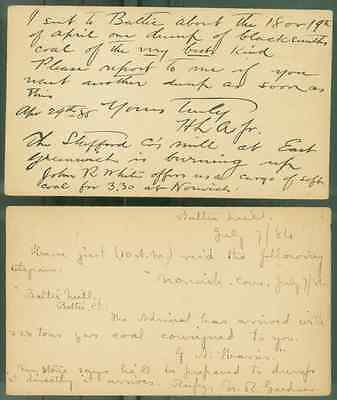 I sent to Baltic about the 18 or 19th
of april one dump of blacksmiths
coal of the very best kind
Please report to me if you
want another dump as soon as
this
Yours truly
Apr 29th 85
The Stafford Co's mill at East
Greenwich is burning up
John R White offers us a cargo of soft
coal for 3.30 at Norwich
Baltic Mill.
July 7/86
Have just (10 A.M.) rec'd the following
telegram:
"Norwich, Conn, July 7/86
"Baltic Mill,
Baltic Ct.
The Admiral has arrived with
tons gas coal consigned to you.
says he'll be prepared to dump
it directly it arrives. Resp'y, Gardner